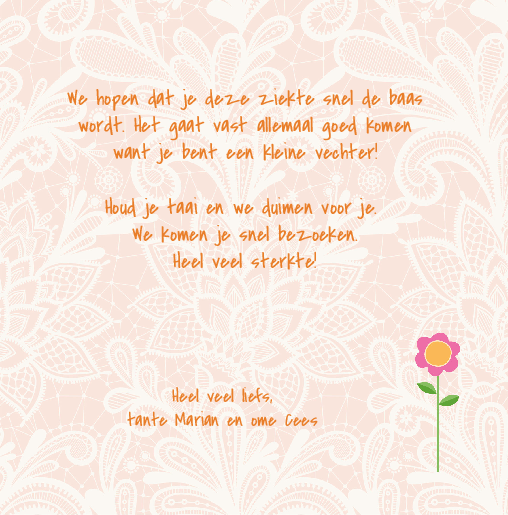 We hopen dat je deze ziekte snel de baas
wordt. Het gaat vast allemaal goed komen
want je bent een kleine vechter!
Houd je taai en we duimen voor je.
We komen je snel bezoeken.
Heel veel sterkte!
Heel veel liefs,
tante Marian en ome Cees